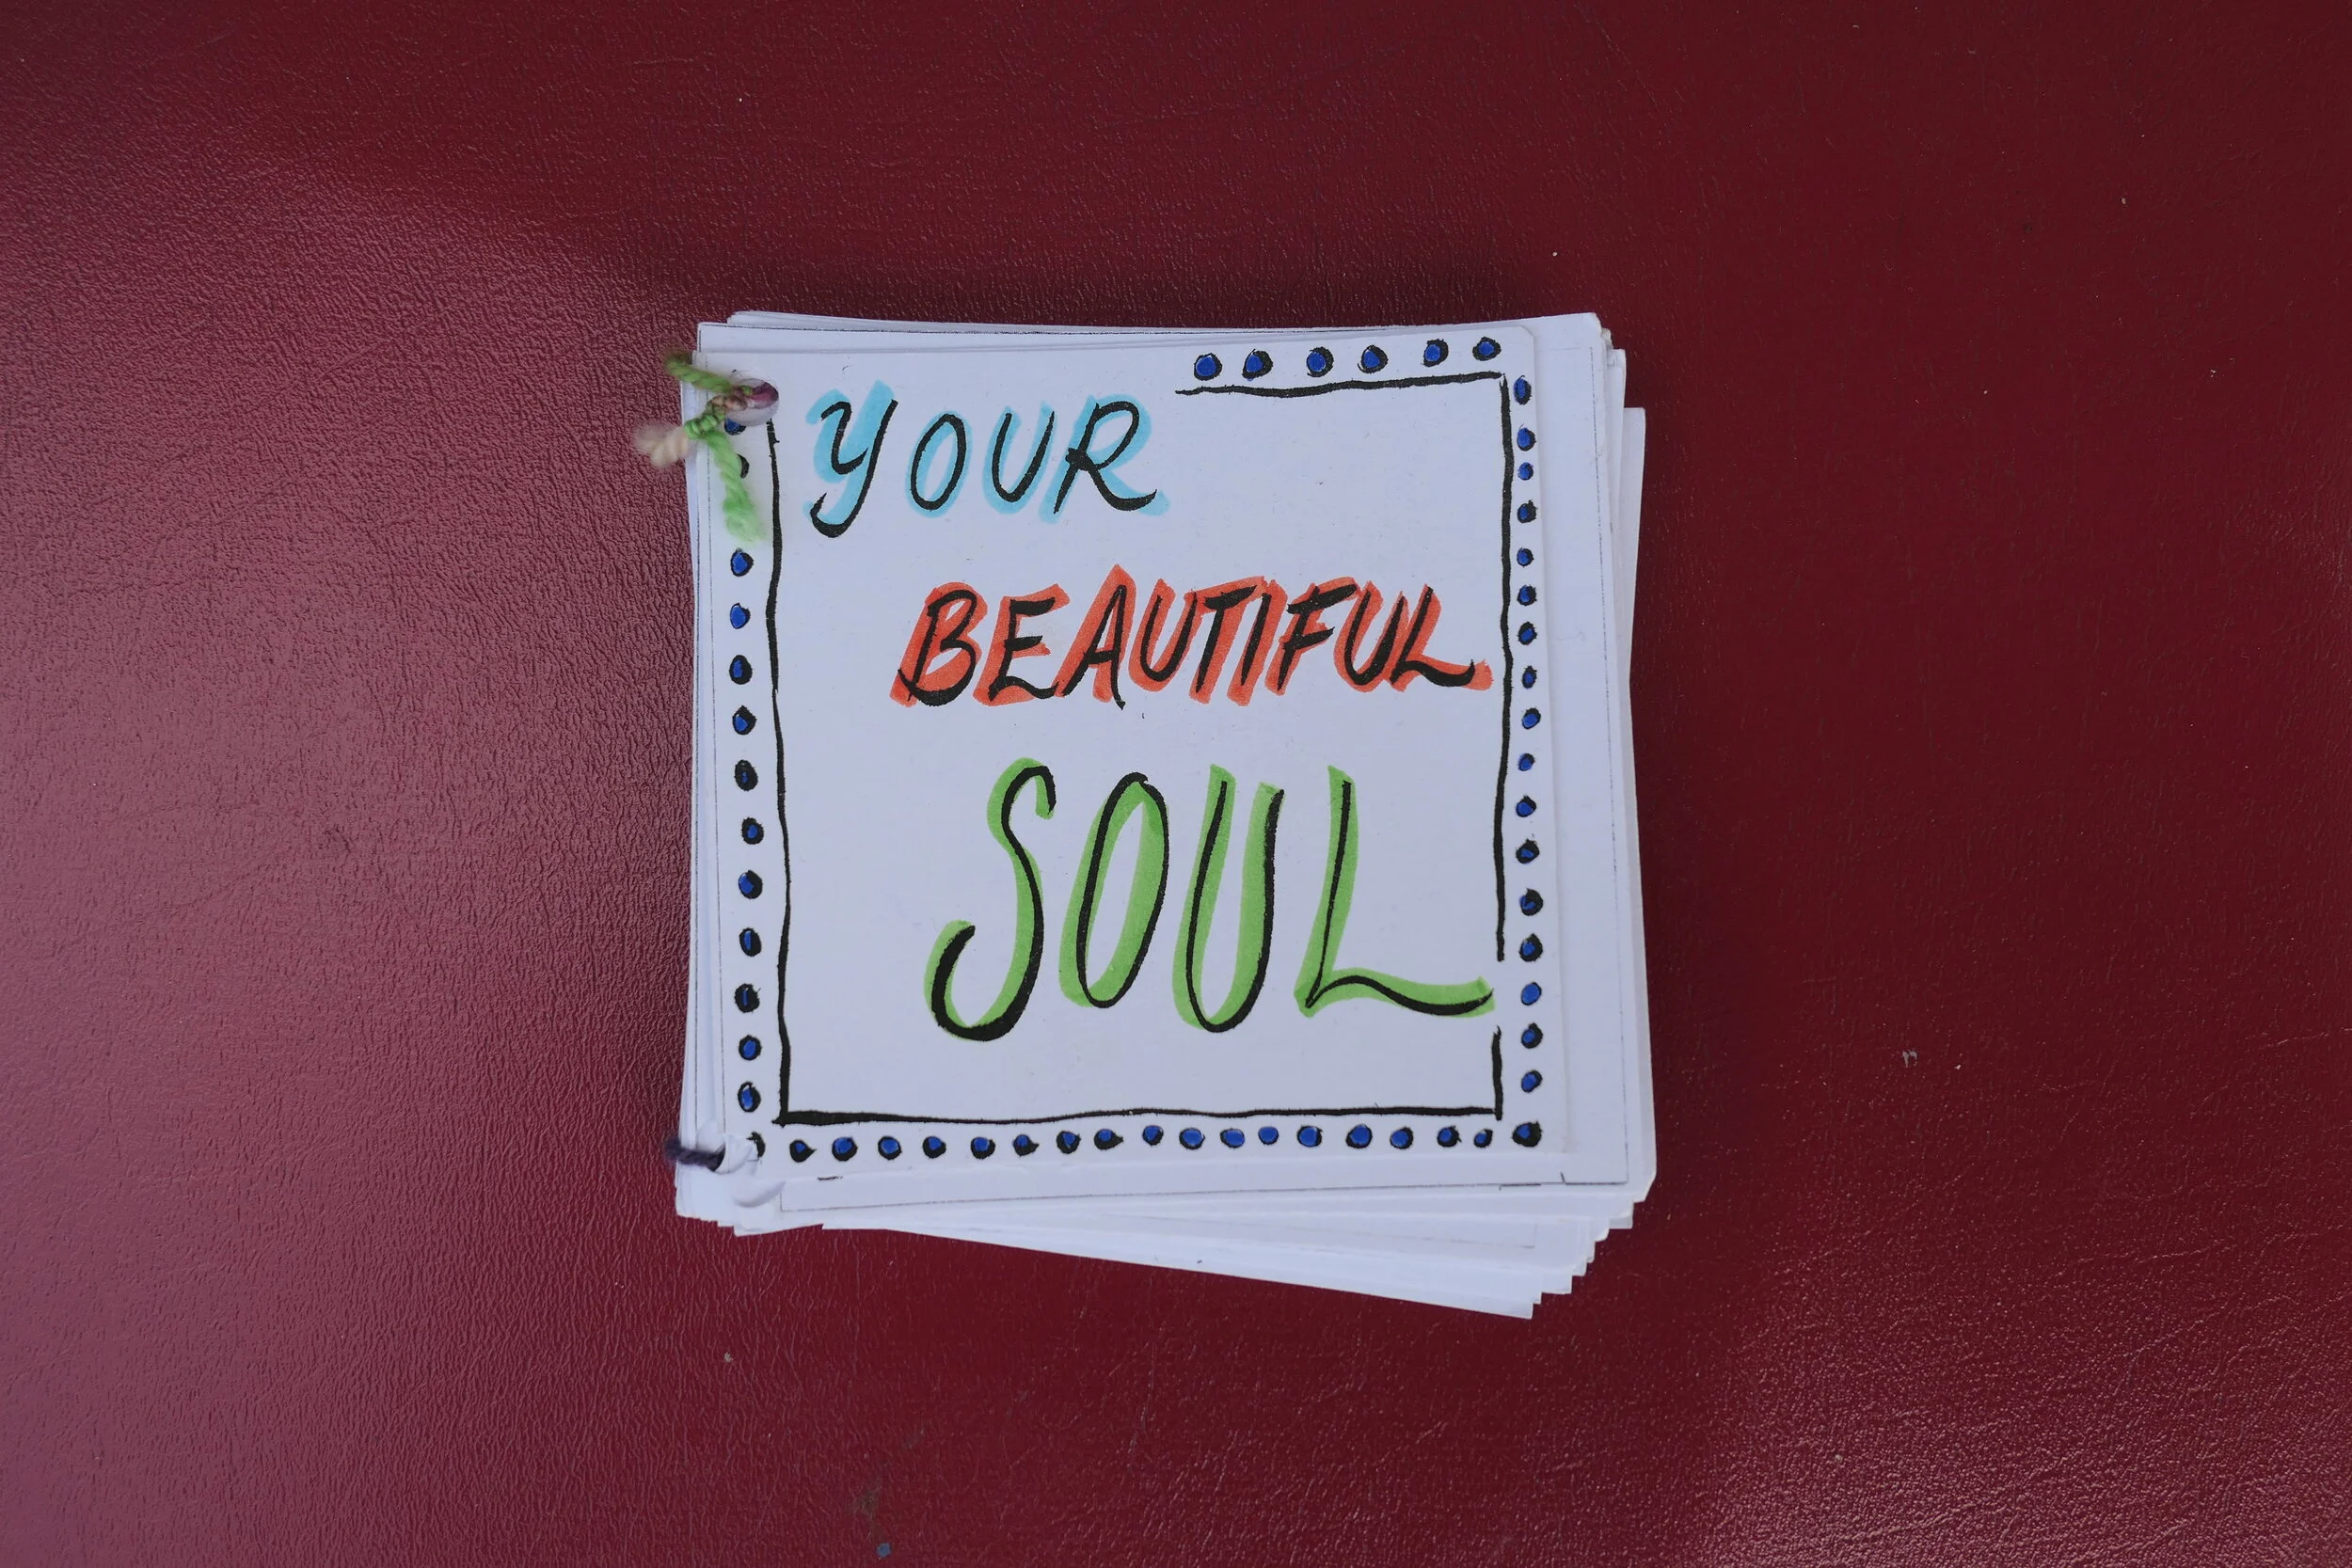 YOUR
BEAUTIFUL
SOUL